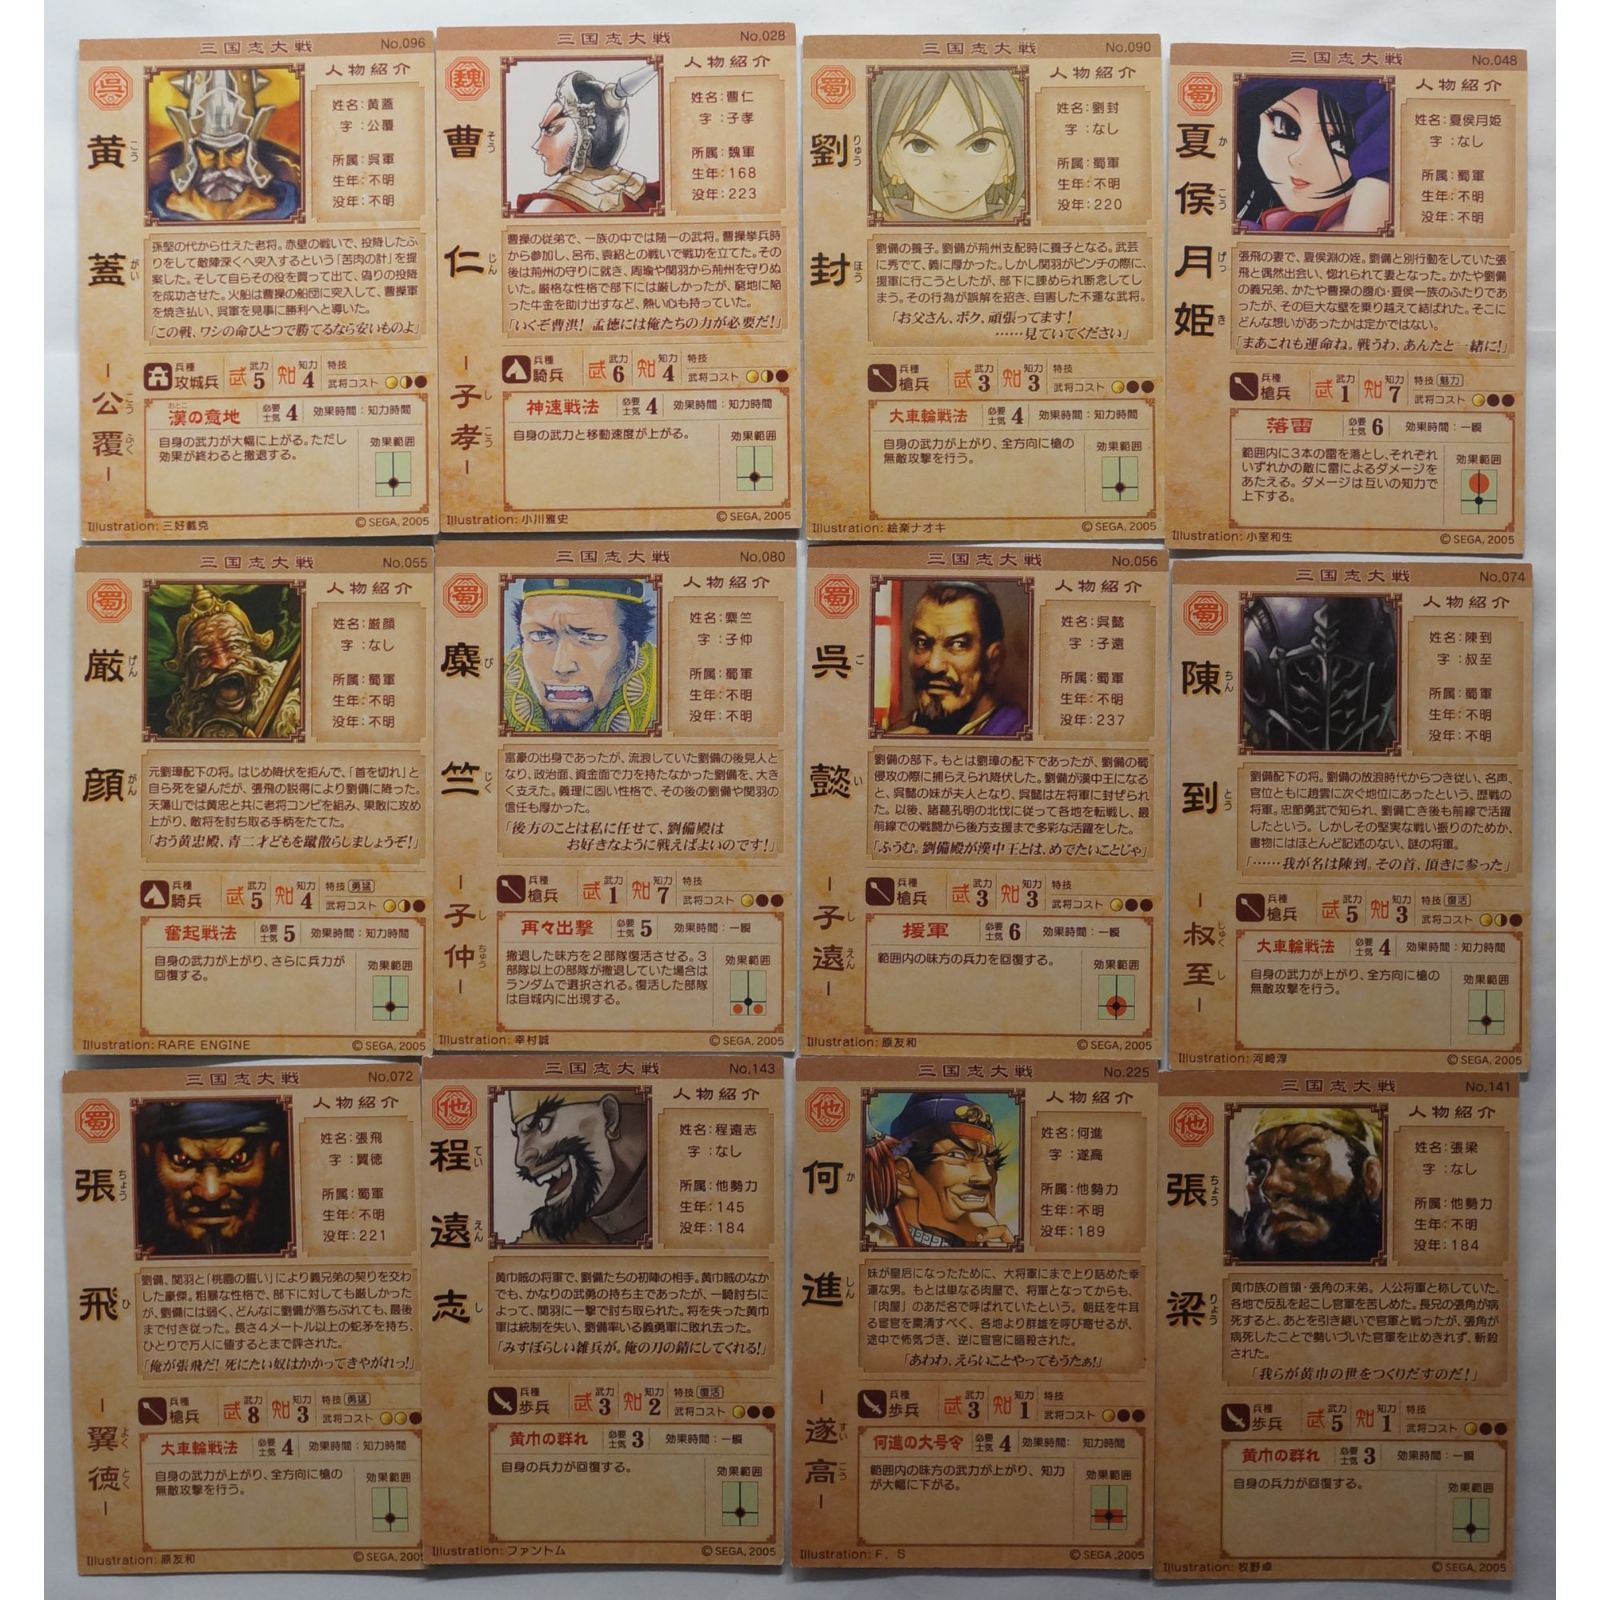 三国志大戦 No.096
呉
人物紹介
黄蓋
こう がい
公覆
こう ふく
姓名：黄蓋
字：公覆
所属：呉軍
生年：不明
没年：不明
孫堅の代から仕えた老将。赤壁の戦いで、投降したふ
りをして敵陣深くへ突入するという「苦肉の計」を提
案した。そして自らその役を買って出て、偽りの投降
を成功させた。火船は曹操の船団に突入して、曹操軍
を焼き払い、呉軍を見事に勝利へと導いた。
「この戦、ワシの命ひとつで勝てるなら安いものよ」
兵種 攻城兵 武力 5 知力 4 特技
武将コスト
漢の意地 必要士気 4 効果時間：知力時間
おとこ
自身の武力が大幅に上がる。ただし
効果が終わると撤退する。
効果範囲
Illustration：三好載克 © SEGA, 2005
三国志大戦 No.028
魏
人物紹介
曹仁
そう じん
子孝
し こう
姓名：曹仁
字：子孝
所属：魏軍
生年：168
没年：223
曹操の従弟で、一族の中では随一の武将。曹操挙兵時
から参加し、呂布、袁紹との戦いで戦功を立てた。その
後は荊州の守りに就き、周瑜や関羽から荊州を守りぬ
いた。厳格な性格で部下には厳しかったが、窮地に陥
った牛金を助け出すなど、熱い心も持っていた。
「いくぞ曹洪！孟徳には俺たちの力が必要だ！」
兵種 騎兵 武力 6 知力 4 特技
武将コスト
神速戦法 必要士気 4 効果時間：知力時間
自身の武力と移動速度が上がる。
効果範囲
Illustration：小川雅史 © SEGA, 2005
三国志大戦 No.090
蜀
人物紹介
劉封
りゅう ほう
姓名：劉封
字：なし
所属：蜀軍
生年：不明
没年：220
劉備の養子。劉備が荊州支配時に養子となる。武芸
に秀でて、義に厚かった。しかし関羽がピンチの際に、
援軍に行こうとしたが、部下に諫められ断念してし
まう。その行為が誤解を招き、自害した不運な武将。
「お父さん、ボク、頑張ってます！
……見ていてください」
兵種 槍兵 武力 3 知力 3 特技
武将コスト
大車輪戦法 必要士気 4 効果時間：知力時間
自身の武力が上がり、全方向に槍の
無敵攻撃を行う。
効果範囲
Illustration：絵楽ナオキ © SEGA, 2005
三国志大戦 No.048
蜀
人物紹介
夏侯月姫
か こう げっ き
姓名：夏侯月姫
字：なし
所属：蜀軍
生年：不明
没年：不明
張飛の妻で、夏侯淵の姪。劉備と別行動をしていた張
飛と偶然出会い、惚れられて妻となった。かたや劉備
の義兄弟、かたや曹操の腹心・夏侯一族のふたりであ
ったが、その巨大な壁を乗り越えて結ばれた。そこに
どんな想いがあったかは定かではない。
「まあこれも運命ね。戦うわ、あんたと一緒に！」
兵種 槍兵 武力 1 知力 7 特技 魅力
武将コスト
落雷 必要士気 6 効果時間：一瞬
範囲内に3本の雷を落とし、それぞれ
いずれかの敵に雷によるダメージを
あたえる。ダメージは互いの知力で
上下する。
効果範囲
Illustration：小室和生 © SEGA, 2005
三国志大戦 No.055
蜀
人物紹介
厳顔
げん がん
姓名：厳顔
字：なし
所属：蜀軍
生年：不明
没年：不明
元劉璋配下の将。はじめ降伏を拒んで、「首を切れ」と
自ら死を望んだが、張飛の説得により劉備に降った。
天蕩山では黄忠と共に老将コンビを組み、果敢に攻め
上がり、敵将を討ち取る手柄をたてた。
「おう黄忠殿、青二才どもを蹴散らしましょうぞ！」
兵種 騎兵 武力 5 知力 4 特技 勇猛
武将コスト
奮起戦法 必要士気 5 効果時間：知力時間
自身の武力が上がり、さらに兵力が
回復する。
効果範囲
Illustration：RARE ENGINE © SEGA, 2005
三国志大戦 No.080
蜀
人物紹介
麋竺
び じく
子仲
し ちゅう
姓名：麋竺
字：子仲
所属：蜀軍
生年：不明
没年：不明
富豪の出身であったが、流浪していた劉備の後見人と
なり、政治面、資金面で力を持たなかった劉備を、大き
く支えた。義理に固い性格で、その後の劉備や関羽の
信任も厚かった。
「後方のことは私に任せて、劉備殿は
お好きなように戦えばよいのです！」
兵種 槍兵 武力 1 知力 7 特技
武将コスト
再々出撃 必要士気 5 効果時間：一瞬
撤退した味方を2部隊復活させる。3
部隊以上の部隊が撤退していた場合は
ランダムで選択される。復活した部隊
は自城内に出現する。
効果範囲
Illustration：幸村誠 © SEGA, 2005
三国志大戦 No.056
蜀
人物紹介
呉懿
ご い
子遠
し えん
姓名：呉懿
字：子遠
所属：蜀軍
生年：不明
没年：237
劉備の部下。もとは劉璋の配下であったが、劉備の蜀
侵攻の際に捕らえられ降伏した。劉備が漢中王になる
と、呉懿の妹が夫人となり、呉懿は左将軍に封ぜられ
た。以後、諸葛孔明の北伐に従って各地を転戦し、最
前線での戦闘から後方支援まで多彩な活躍をした。
「ふうむ。劉備殿が漢中王とは、めでたいことじゃ」
兵種 槍兵 武力 3 知力 3 特技
武将コスト
援軍 必要士気 6 効果時間：一瞬
範囲内の味方の兵力を回復する。
効果範囲
Illustration：原友和 © SEGA, 2005
三国志大戦 No.074
蜀
人物紹介
陳到
ちん とう
叔至
しゅく し
姓名：陳到
字：叔至
所属：蜀軍
生年：不明
没年：不明
劉備配下の将。劉備の放浪時代からつき従い、名声、
官位ともに趙雲に次ぐ地位にあったという、歴戦の
将軍。忠節勇武で知られ、劉備亡き後も前線で活躍
したという。しかしその堅実な戦い振りのためか、
書物にはほとんど記述のない、謎の将軍。
「……我が名は陳到。その首、頂きに参った」
兵種 槍兵 武力 5 知力 3 特技 復活
武将コスト
大車輪戦法 必要士気 4 効果時間：知力時間
自身の武力が上がり、全方向に槍の
無敵攻撃を行う。
効果範囲
Illustration：河崎淳 © SEGA, 2005
三国志大戦 No.072
蜀
人物紹介
張飛
ちょう ひ
翼徳
よく とく
姓名：張飛
字：翼徳
所属：蜀軍
生年：不明
没年：221
劉備、関羽と「桃園の誓い」により義兄弟の契りを交わ
した豪傑。粗暴な性格で、部下に対しても厳しかった
が、劉備には弱く、どんなに劉備が落ちぶれても、最後
まで付き従った。長さ4メートル以上の蛇矛を持ち、
ひとりで万人に値するとまで評された。
「俺が張飛だ！死にたい奴はかかってきやがれっ！」
兵種 槍兵 武力 8 知力 3 特技 勇猛
武将コスト
大車輪戦法 必要士気 4 効果時間：知力時間
自身の武力が上がり、全方向に槍の
無敵攻撃を行う。
効果範囲
Illustration：原友和 © SEGA, 2005
三国志大戦 No.143
他
人物紹介
程遠志
てい えん し
姓名：程遠志
字：なし
所属：他勢力
生年：145
没年：184
黄巾賊の将軍で、劉備たちの初陣の相手。黄巾賊のなか
でも、かなりの武勇の持ち主であったが、一騎討ちに
よって、関羽に一撃で討ち取られた。将を失った黄巾
軍は統制を失い、劉備率いる義勇軍に敗れ去った。
「みすぼらしい雑兵が。俺の刀の錆にしてくれる！」
兵種 歩兵 武力 3 知力 2 特技 復活
武将コスト
黄巾の群れ 必要士気 3 効果時間：一瞬
自身の兵力が回復する。
効果範囲
Illustration：ファントム © SEGA, 2005
三国志大戦 No.225
他
人物紹介
何進
か しん
遂高
すい こう
姓名：何進
字：遂高
所属：他勢力
生年：不明
没年：189
妹が皇后になったために、大将軍にまで上り詰めた幸
運な男。もとは単なる肉屋で、将軍となってからも、
「肉屋」のあだ名で呼ばれていたという。朝廷を牛耳
る宦官を粛清すべく、各地より群雄を呼び寄せるが、
途中で怖気づき、逆に宦官に暗殺された。
「あわわ、えらいことやってもうたぁ！」
兵種 歩兵 武力 3 知力 1 特技
武将コスト
何進の大号令 必要士気 4 効果時間：知力時間
範囲内の味方の武力が上がり、知力
が大幅に下がる。
効果範囲
Illustration：F．S © SEGA, 2005
三国志大戦 No.141
他
人物紹介
張梁
ちょう りょう
姓名：張梁
字：なし
所属：他勢力
生年：不明
没年：184
黄巾族の首領・張角の末弟。人公将軍と称していた。
各地で反乱を起こし官軍を苦しめた。長兄の張角が病
死すると、あとを引き継いで官軍と戦ったが、張角が
病死したことで勢いづいた官軍を止めきれず、斬殺
された。
「我らが黄巾の世をつくりだすのだ！」
兵種 歩兵 武力 5 知力 1 特技
武将コスト
黄巾の群れ 必要士気 3 効果時間：一瞬
自身の兵力が回復する。
効果範囲
Illustration：牧野卓 © SEGA, 2005